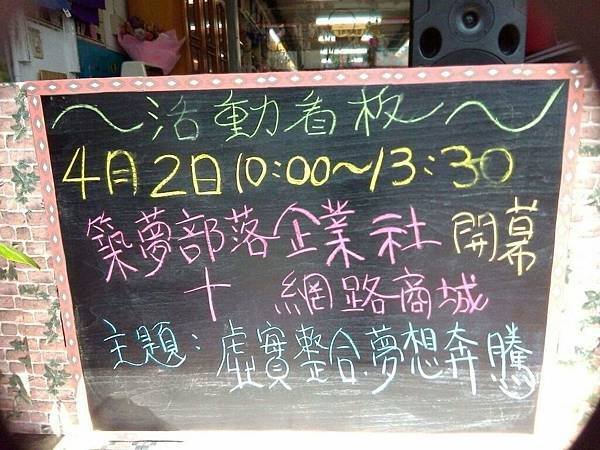 ～活動看板～
4月2日10:00～13:30
築夢部落企業社 開幕
十 網路商城
主題：虛實整合.夢想奔騰